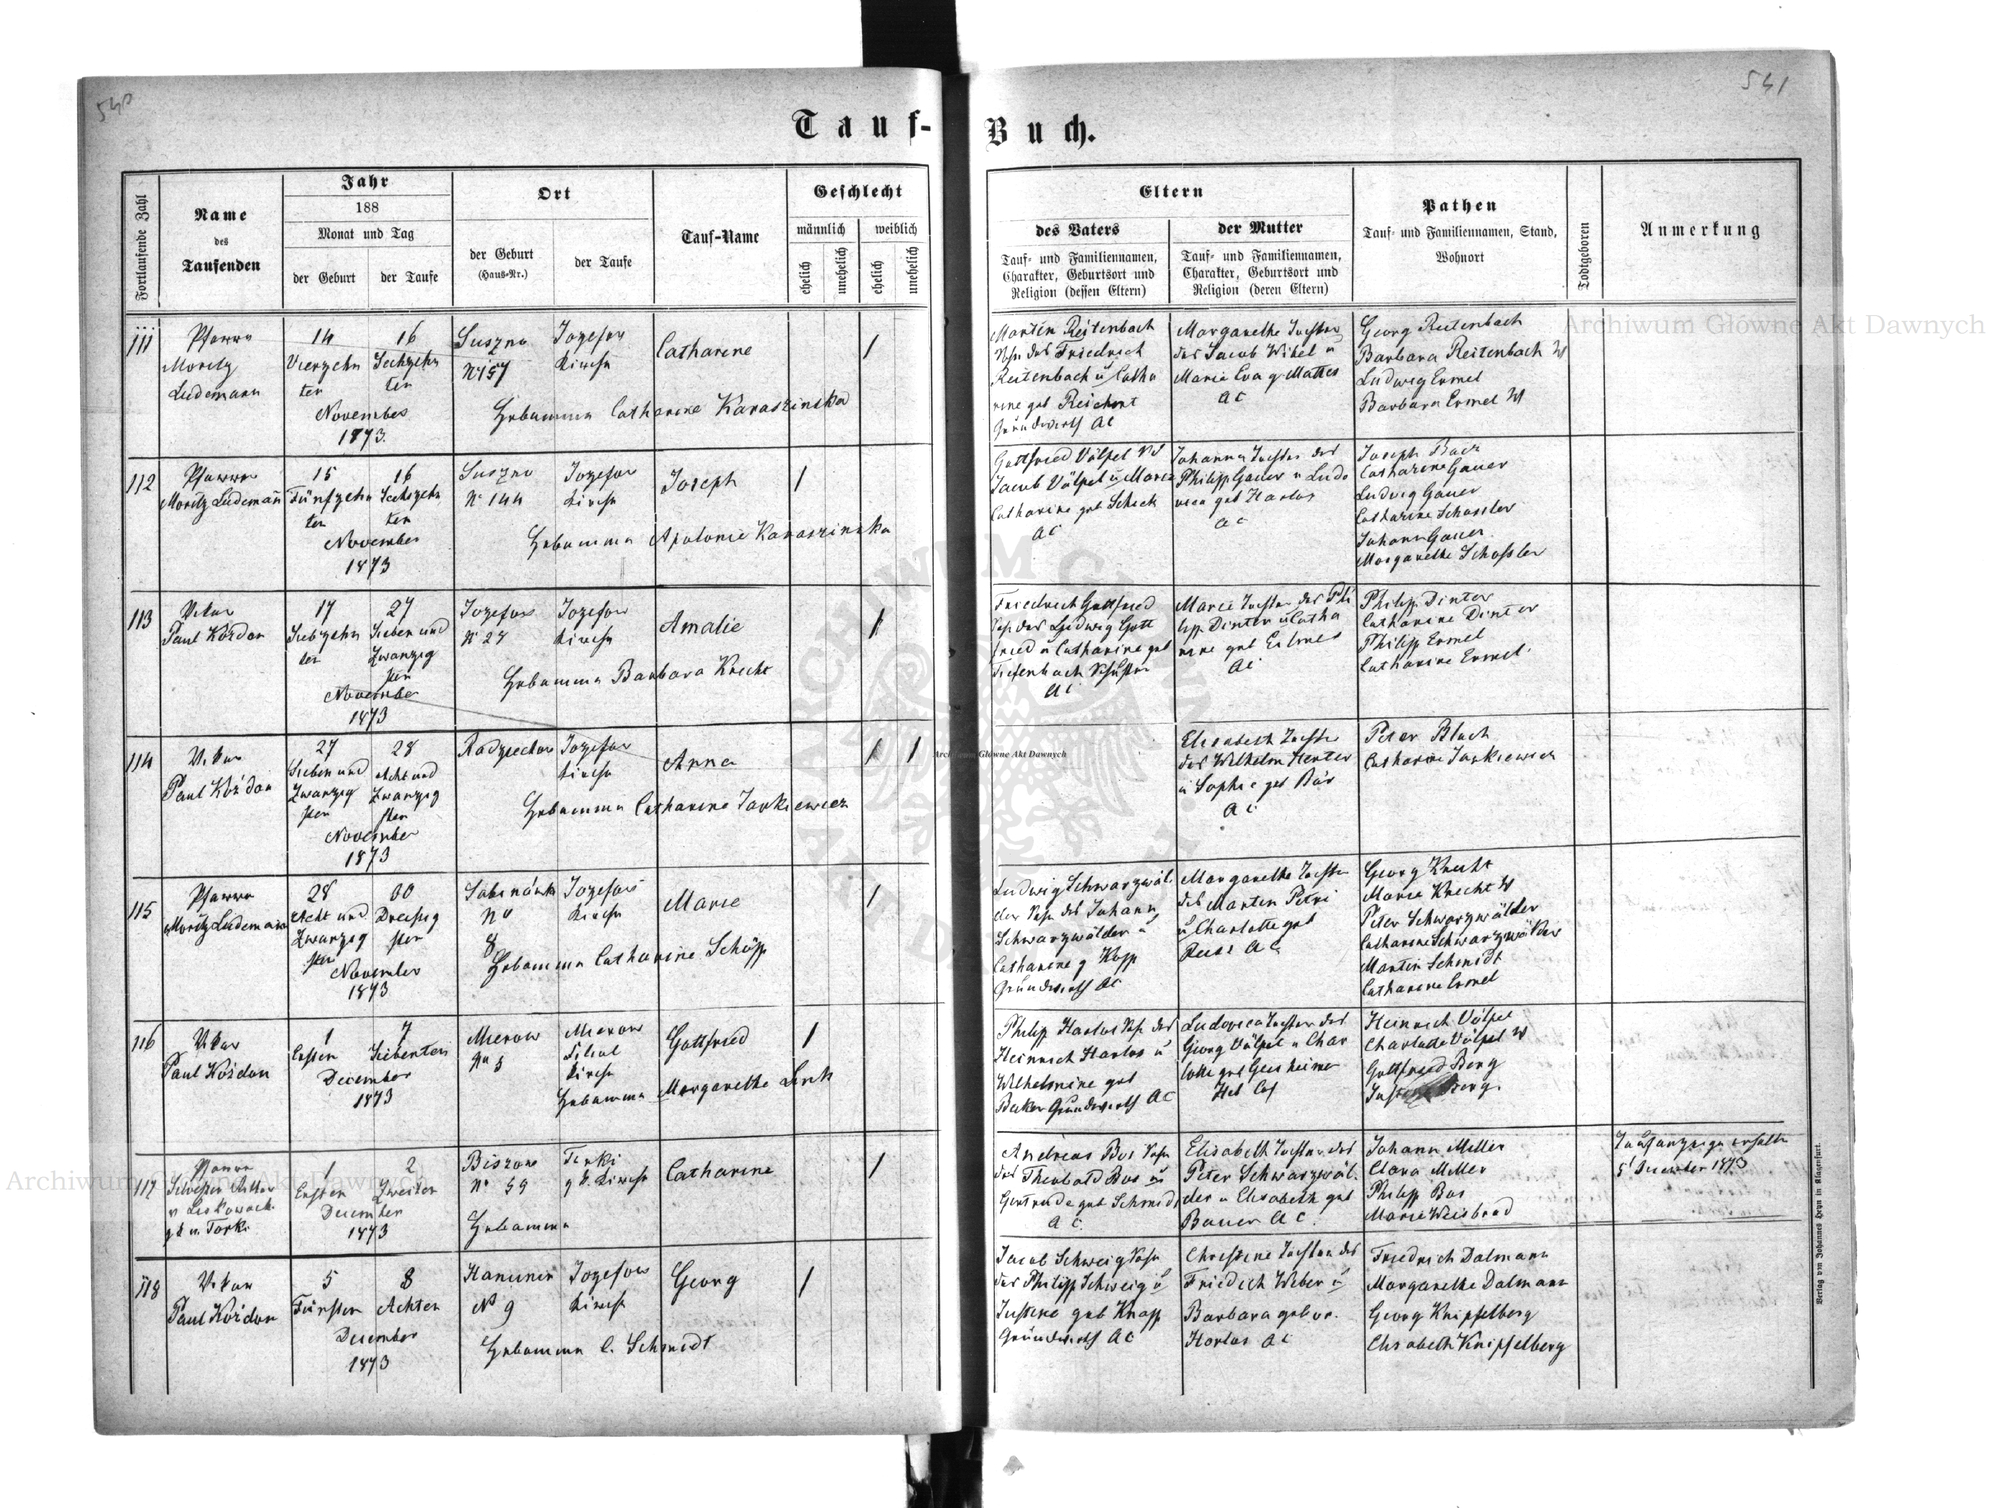 540
541
Tauf-
Buch.
Fortlaufende Zahl
Name
des
Taufenden
Jahr
188
Monat und Tag
der Geburt
der Taufe
Ort
der Geburt
(Haus-Nr.)
der Taufe
Tauf-Name
Geschlecht
männlich
weiblich
ehelich
unehelich
ehelich
unehelich
Eltern
des Vaters
Tauf- und Familiennamen,
Charakter, Geburtsort und
Religion (dessen Eltern)
der Mutter
Tauf- und Familiennamen,
Charakter, Geburtsort und
Religion (deren Eltern)
Pathen
Tauf- und Familiennamen, Stand,
Wohnort
Todtgeboren
Anmerkung
111
Pfarrer
Moritz
Ludemann
14
Vierzehn
ter
16
Sechzehn
ter
November
1873.
Suszno
No 157
Jozefow
Kirche
Catharine
1
Hebamme Catharine Karaszinska
Martin Reitenbach
Sohn des Friedrich
Reitenbach u Catha
rine geb Reichert
Grundwirth AC
Margarethe Tochter
des Jacob Wikel u
Marie Eva g. Mattes
AC
Georg Reitenbach
Barbara Reitenbach W
Ludwig Ermel
Barbara Ermel W
112
Pfarrer
Moritz Ludemañ
15
Fünfzehn
ter
16
Sechzehn
ter
November
1873
Suszno
No 144
Jozefow
Kirche
Joseph
1
Hebamme Apolonie Karaszinska
Gottfried Völpel
Jacob Völpel u Marie
Catharine geb Scheck
AC
Johanna Tochter des
Philipp Gauer u Ludo
vica geb Harlos
AC
Joseph Bacz
Catharine Gauer
Ludwig Gauer
Catharine Schossler
Johann Gauer
Margarethe Schossler
113
Vikar
Paul Kożdon
17
Siebzehn
ter
27
Sieben und
Zwanzig
sten
November
1873
Jozefow
No 27
Jozefow
Kirche
Amalie
1
Hebamme Barbara Knecht
Friedrich Gottfried
Sohn des Ludwig Gott
fried u Catharine geb
Tiefenbach
AC
Marie Tochter des Phi
lipp Dinter u Catha
rine geb
AC
Philipp Dinter
Catharine Dinter
Philipp Ermel
Catharine Ermel.
114
Vikar
Paul Kożdon
27
Sieben und
Zwanzig
sten
28
Acht und
Zwanzig
sten
November
1873
Radziechow
Jozefow
Kirche
Anna
1
1
Hebamme Catharine Jankiewicz
Elisabeth Tochter
des Wilhelm Henter
u Sophie geb Bär
AC
Peter Bluch
Catharine Jankiewicz
115
Pfarrer
Moritz Ludemann
28
Acht und
Zwanzig
sten
30
Dreißig
sten
November
1873
Sabinówka
No
8
Jozefow
Kirche
Marie
1
Hebamme Catharine Schöpp
Ludwig Schwarzwäl
der Sohn des Johann
Schwarzwälder u
Catharine g Kopp
Grundwirth AC
Margarethe Tochter
des Martin Petri
u Charlotte geb
AC
Georg Knecht
Marie Knecht W
Peter Schwarzwälder
Catharine Schwarzwälder
Martin Schmidt
Catharine Ermel
116
Vikar
Paul Kożdon
1
Ersten
7
Siebenten
December
1873
Mierow
No 5
Mierow
Filial
Kirche
Gottfried
1
Hebamme Margarethe Link
Philipp Harlos Sohn des
Heinrich Harlos u
Wilhelmine geb
Becker Grundwirth AC
Ludovica Tochter des
Georg Völpel u Char
lotte geb Geisheimer
Hel Cof
Heinrich Völpel
Charlotte Völpel W
Gottfried Berg
Justine Berg.
117
Pfarrer
1
Ersten
2
Zweiten
December
1873
Biszow
No 59
Torki
g k. Kirche
Catharine
1
Hebamme
Andreas Bos Sohn
des Theobald Bos u
Gertrude geb Schmidt
AC
Elisabeth Tochter des
Peter Schwarzwäl
der u Elisabeth geb
Bauer AC.
Johann Miller
Clara Miller
Philipp Bos
Marie Weisbrod
Taufanzeige erhalten
5t December 1873
118
Vikar
Paul Kożdon
5
Fünften
8
Achten
December
1873
Hanunin
No 9
Jozefow
Kirche
Georg
1
Hebamme C. Schmidt
Jacob Schweig Sohn
des Philipp Schweig u
Justine geb Knapp
Grundwirth AC
Christine Tochter des
Friedrich Weber u
Barbara gebor.
Harlos AC
Friedrich Dalmann
Margarethe Dalmann
Georg Knipfelberg
Elisabeth Knipfelberg
Verlag von Johannes Heyn in Klagenfurt.
Archiwum Główne Akt Dawnych
Archiwum Główne Akt Dawnych
Archiwum Główne Akt Dawnych
ARCHIWUM GŁÓWNE AKT DAWNYCH